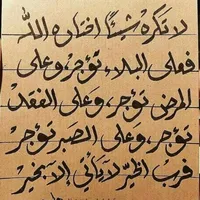 لا تكره شيئًا اختاره الله
فعلى البلاء تؤجر، وعلى
المرض تؤجر، وعلى الفقد
تؤجر، وعلى الصبر تؤجر
فرب الخير لا يأتي إلا بخير